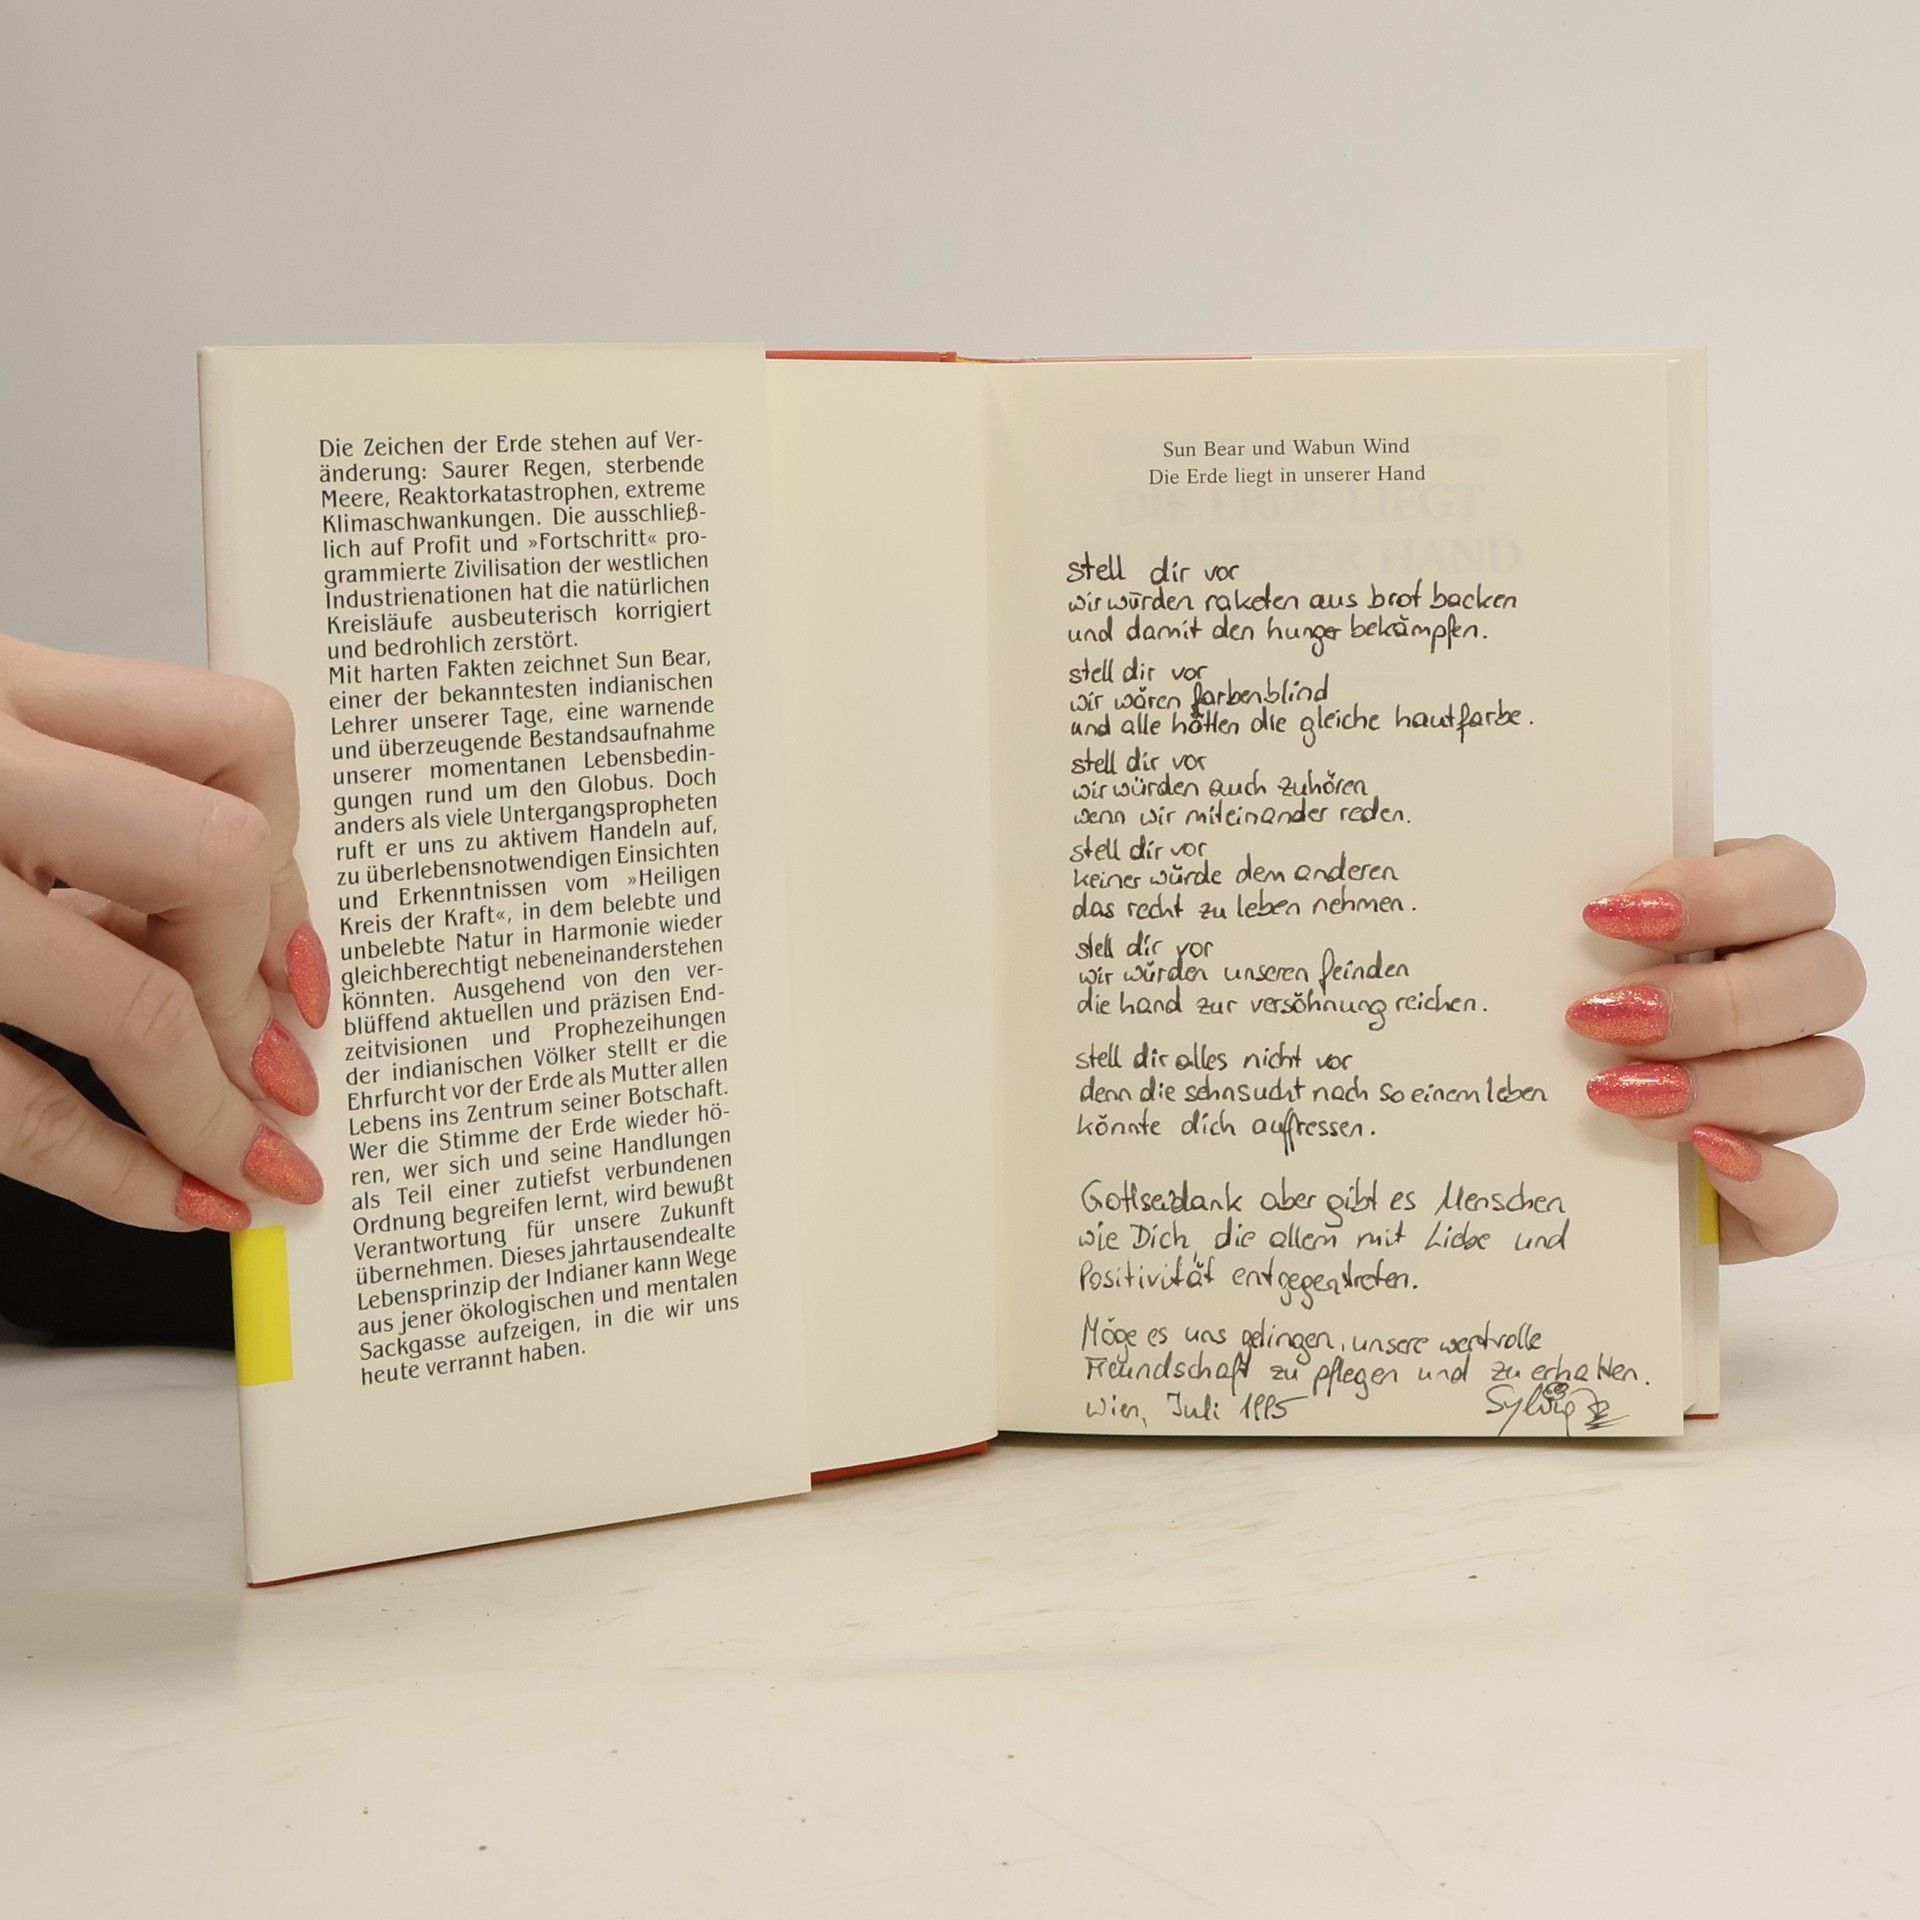 Die Zeichen der Erde stehen auf Ver-
änderung: Saurer Regen, sterbende
Meere, Reaktorkatastrophen, extreme
Klimaschwankungen. Die ausschließ-
lich auf Profit und »Fortschritt« pro-
grammierte Zivilisation der westlichen
Industrienationen hat die natürlichen
Kreisläufe ausbeuterisch korrigiert
und bedrohlich zerstört.
Mit harten Fakten zeichnet Sun Bear,
einer der bekanntesten indianischen
Lehrer unserer Tage, eine warnende
und überzeugende Bestandsaufnahme
unserer momentanen Lebensbedin-
gungen rund um den Globus. Doch
anders als viele Untergangspropheten
ruft er uns zu aktivem Handeln auf,
zu überlebensnotwendigen Einsichten
und Erkenntnissen vom »Heiligen
Kreis der Kraft«, in dem belebte und
unbelebte Natur in Harmonie wieder
gleichberechtigt nebeneinanderstehen
könnten. Ausgehend von den ver-
blüffend aktuellen und präzisen End-
zeitvisionen und Prophezeihungen
der indianischen Völker stellt er die
Ehrfurcht vor der Erde als Mutter allen
Lebens ins Zentrum seiner Botschaft.
Wer die Stimme der Erde wieder hö-
ren, wer sich und seine Handlungen
als Teil einer zutiefst verbundenen
Ordnung begreifen lernt, wird bewußt
Verantwortung für unsere Zukunft
übernehmen. Dieses jahrtausendealte
Lebensprinzip der Indianer kann Wege
aus jener ökologischen und mentalen
Sackgasse aufzeigen, in die wir uns
heute verrannt haben.
Sun Bear und Wabun Wind
Die Erde liegt in unserer Hand
stell dir vor
wir würden raketen aus brot backen
und damit den hunger bekämpfen.
stell dir vor
wir wären farbenblind
und alle hätten die gleiche hautfarbe.
stell dir vor
wir würden auch zuhören
wenn wir miteinander reden.
stell dir vor
keiner würde dem anderen
das recht zu leben nehmen.
stell dir vor
wir würden unseren feinden
die hand zur versöhnung reichen.
stell dir alles nicht vor
denn die sehnsucht nach so einem leben
könnte dich auffressen.
Gottseidank aber gibt es Menschen
wie Dich, die allem mit Liebe und
Positivität entgegentreten.
Möge es uns gelingen, unsere wertvolle
Freundschaft zu pflegen und zu erhalten.
Wien, Juli 1995